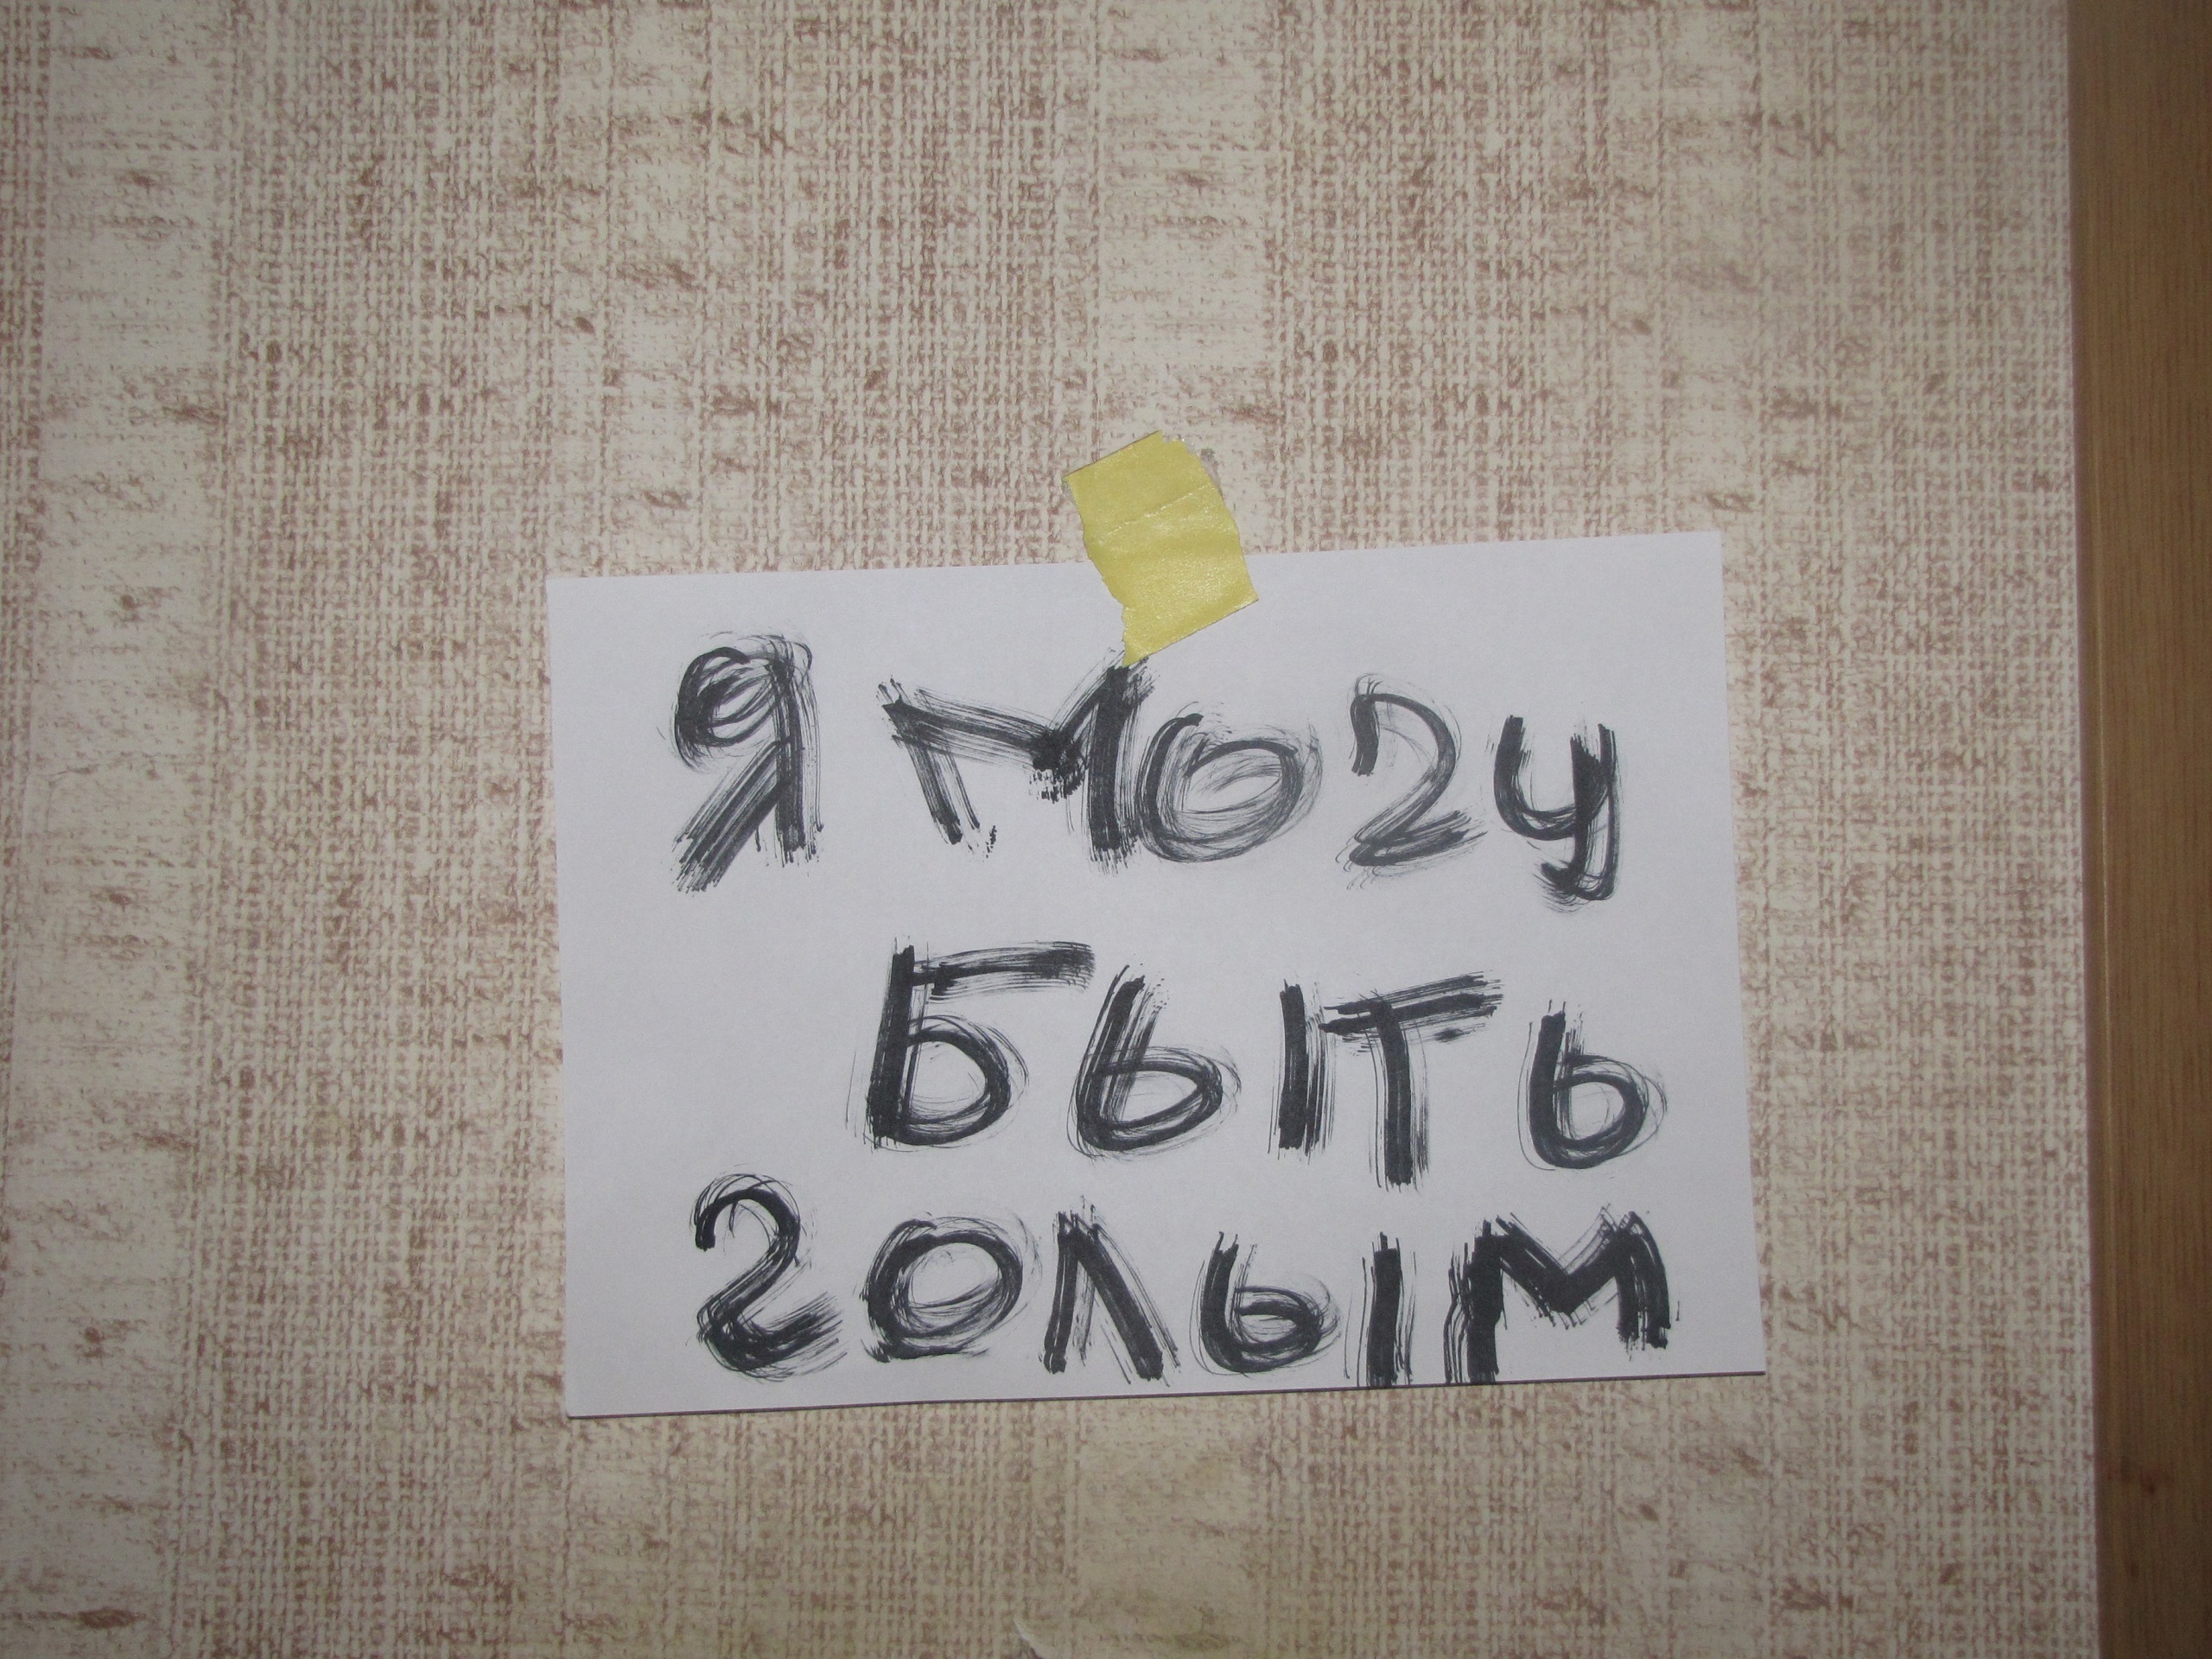 я могу
быть
голым